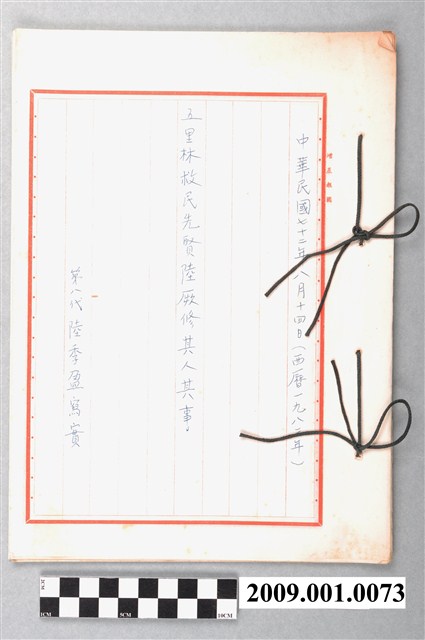 中華民國七十二年八月十四日(西曆一九八三年)
五里林救民先賢陸厥修其人其事
第八代 陸季盈寫實
1CM
5CM
10CM
2009.001.0073